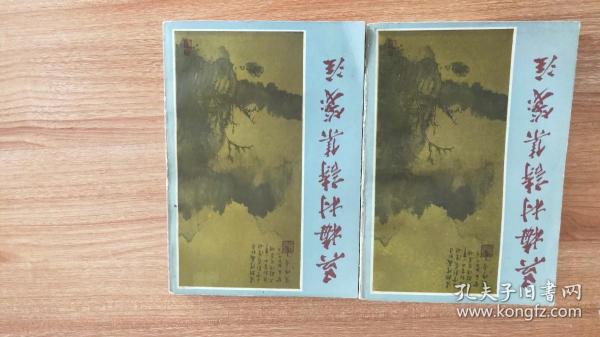 吳梅村詩集箋注
吳梅村詩集箋注
孔夫子旧书网
www.kongfz.com